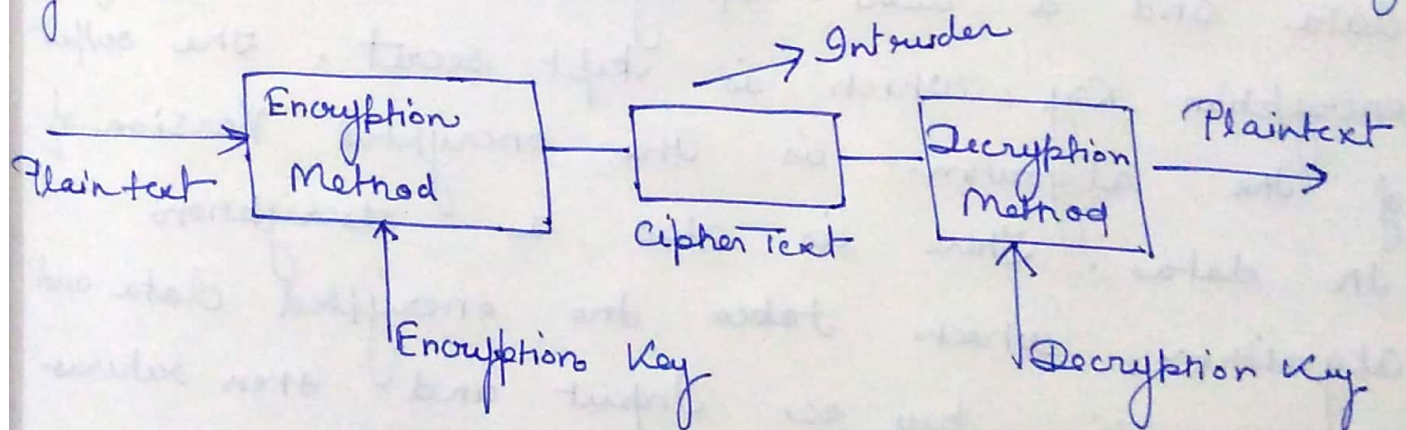 Intruder
Encryption
Method
Plaintext
Cipher Text
Decryption
Method
Plaintext
Encryption Key
Decryption Key